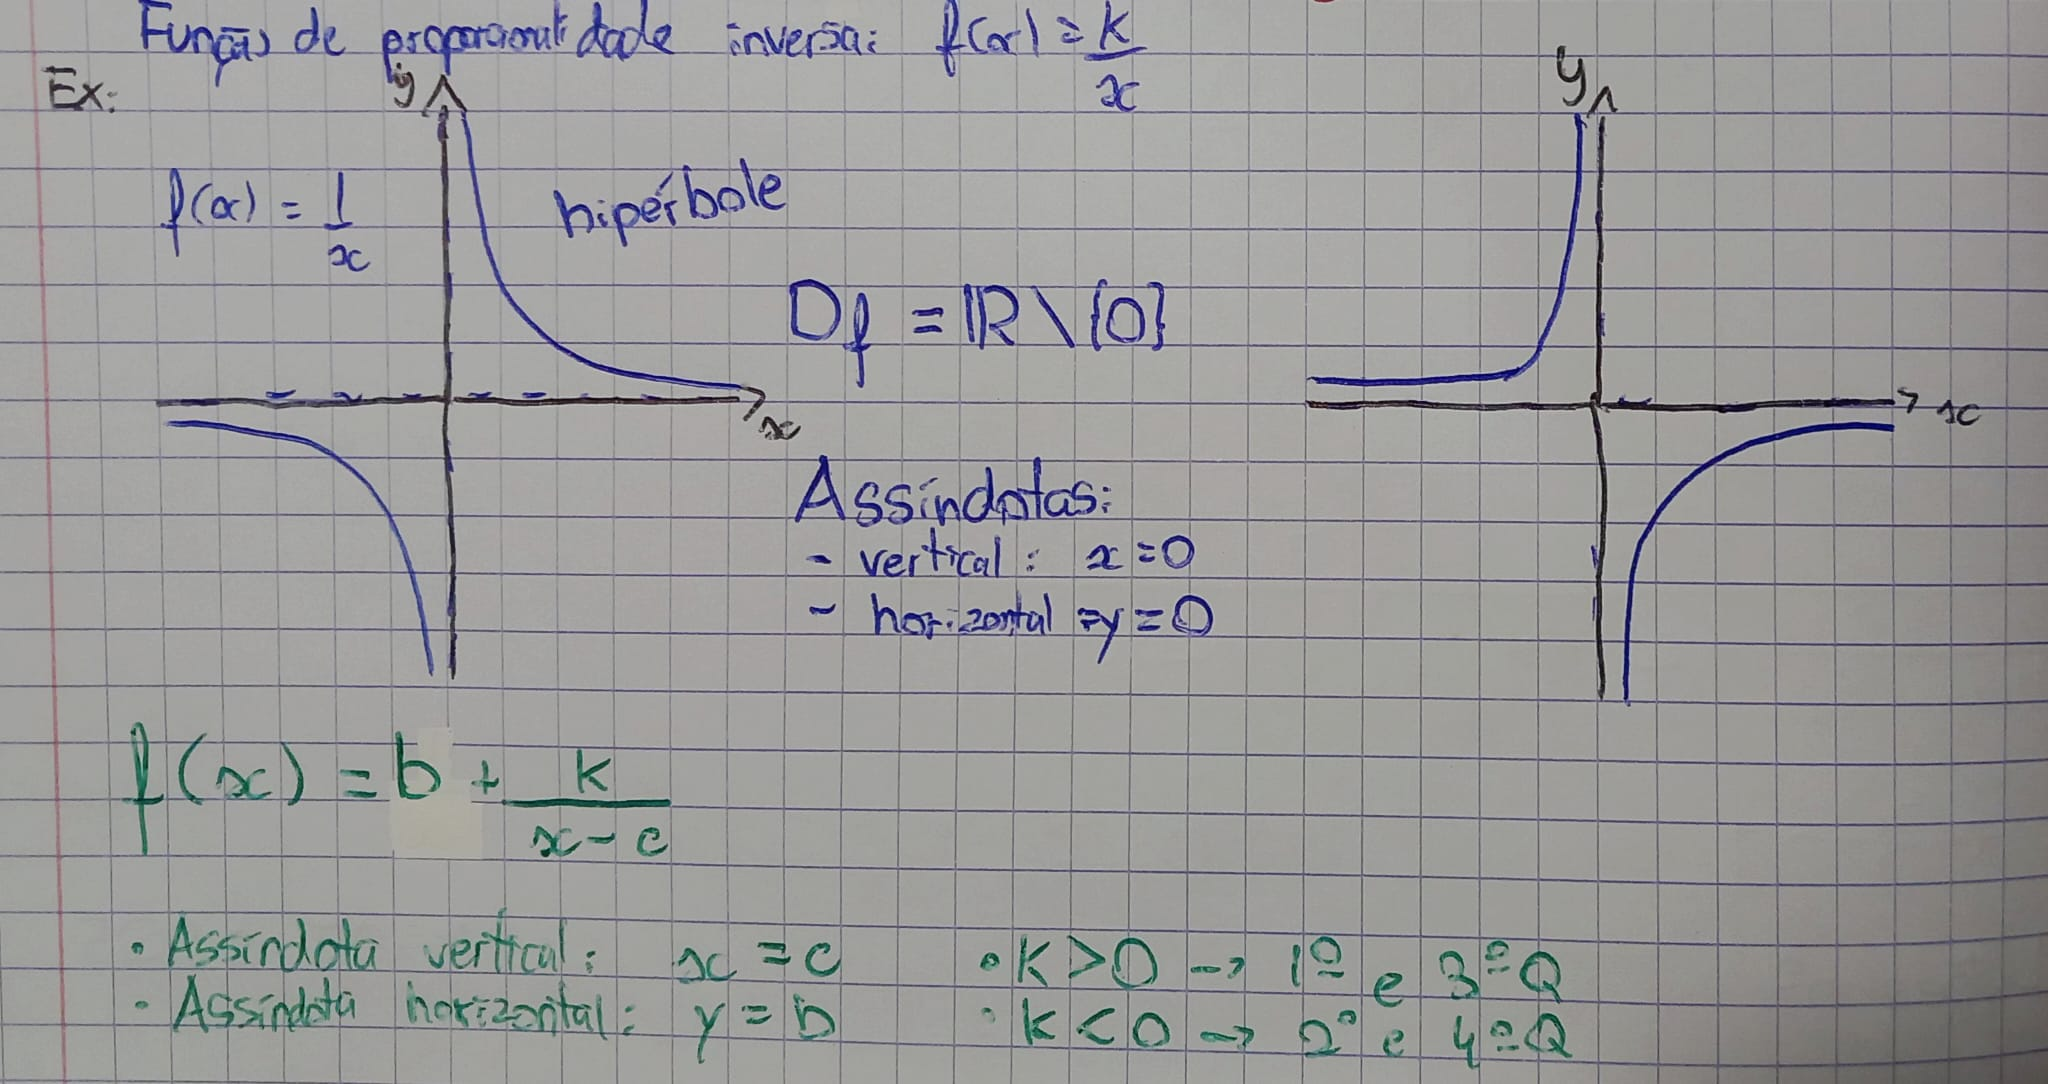 Função de proporcionalidade inversa: f(x) = k/x
Ex:
y
y
f(x) = 1/x
hipérbole
Df = ℝ\{0}
x
x
Assíndotas:
- vertical: x=0
- horizontal =y=0
f(x) = b + k/(x-c)
• Assíndota vertical: x = c
• K>0 → 1º e 3º Q
• Assíndota horizontal: y = b
• K<0 → 2º e 4º Q